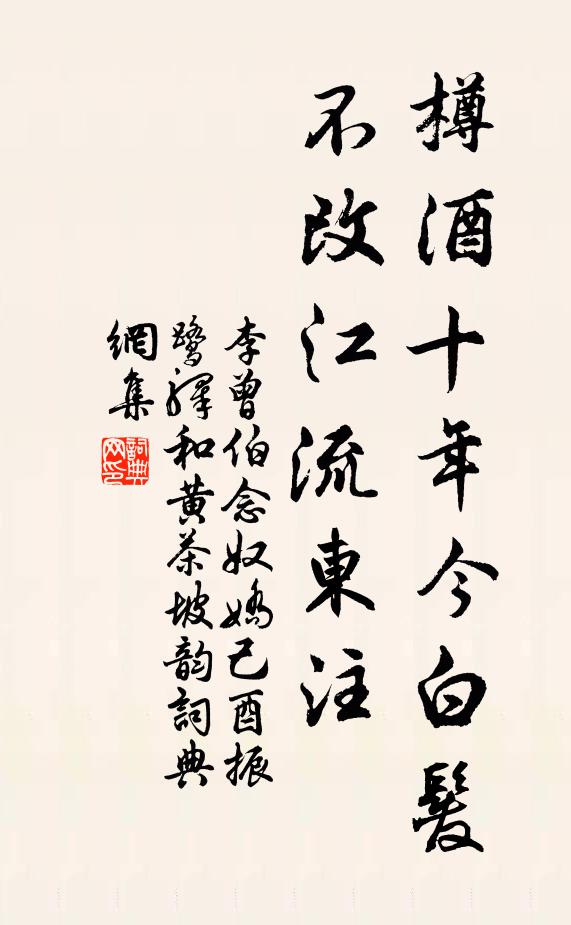 樽酒十年今白髮
不改江流東注
李曾伯念奴嬌己酉振
鷺驛和黃茶坡韵詞典
網集
詞典
网印